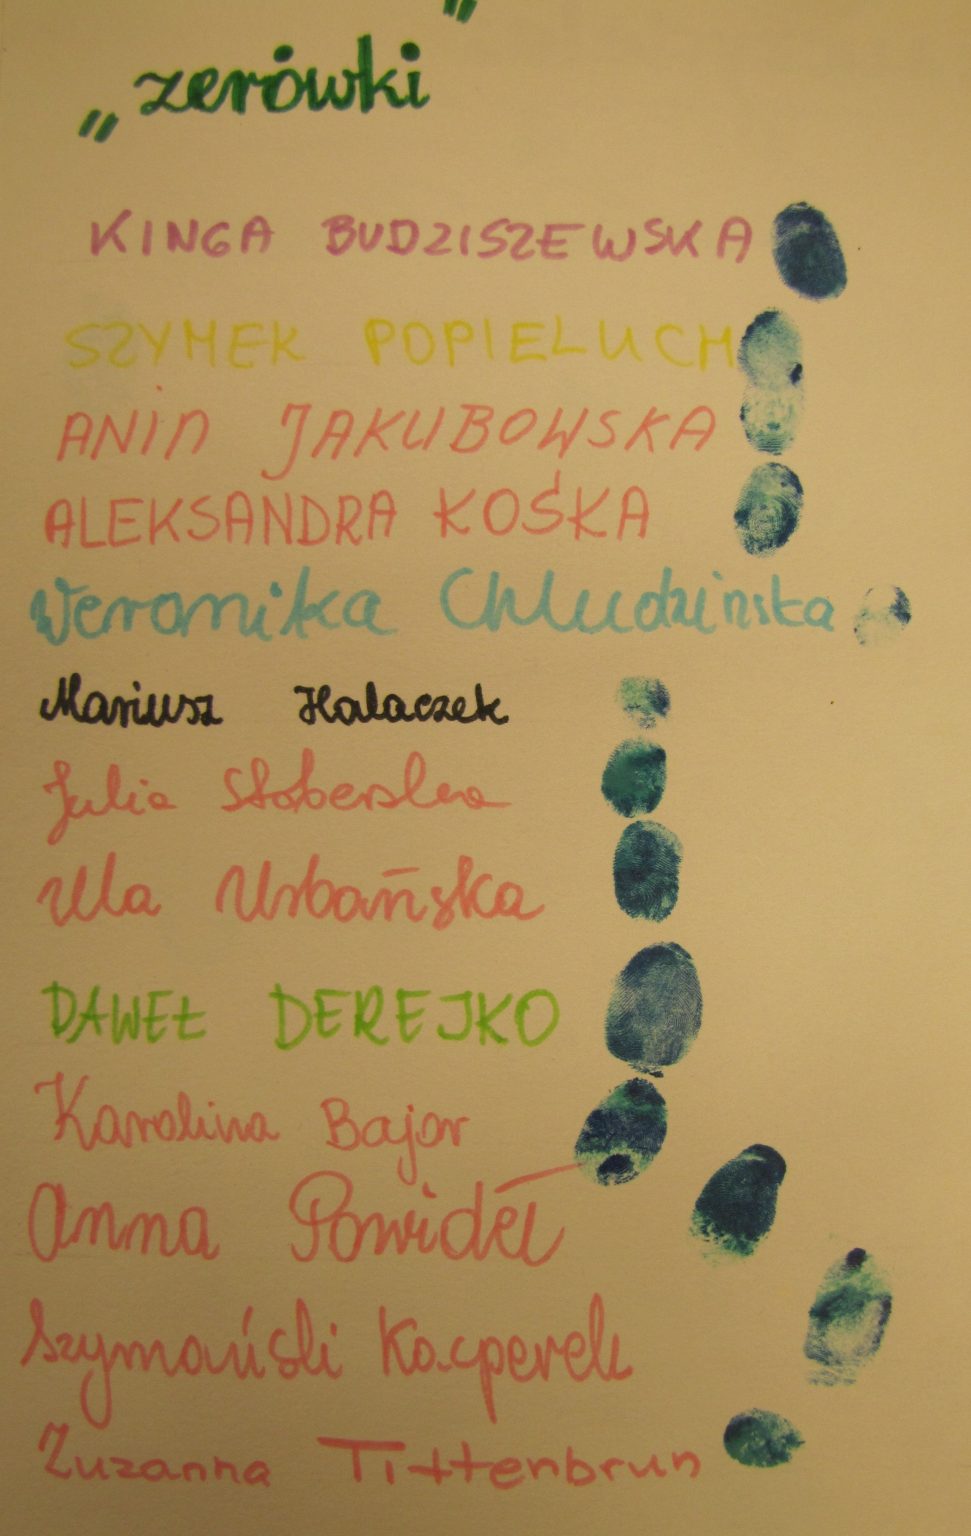 „zerówki”
KINGA BUDZISZEWSKA
SZYMEK POPIELUCH
ANIA JAKUBOWSKA
ALEKSANDRA KOŚKA
Weronika Chludzińska
Mariusz Halaczek
Julia Słoberska
Ula Urbańska
PAWEŁ DEREJKO
Karolina Bajor
Anna Powideł
Szymański Kacperek
Zuzanna Tittenbrun